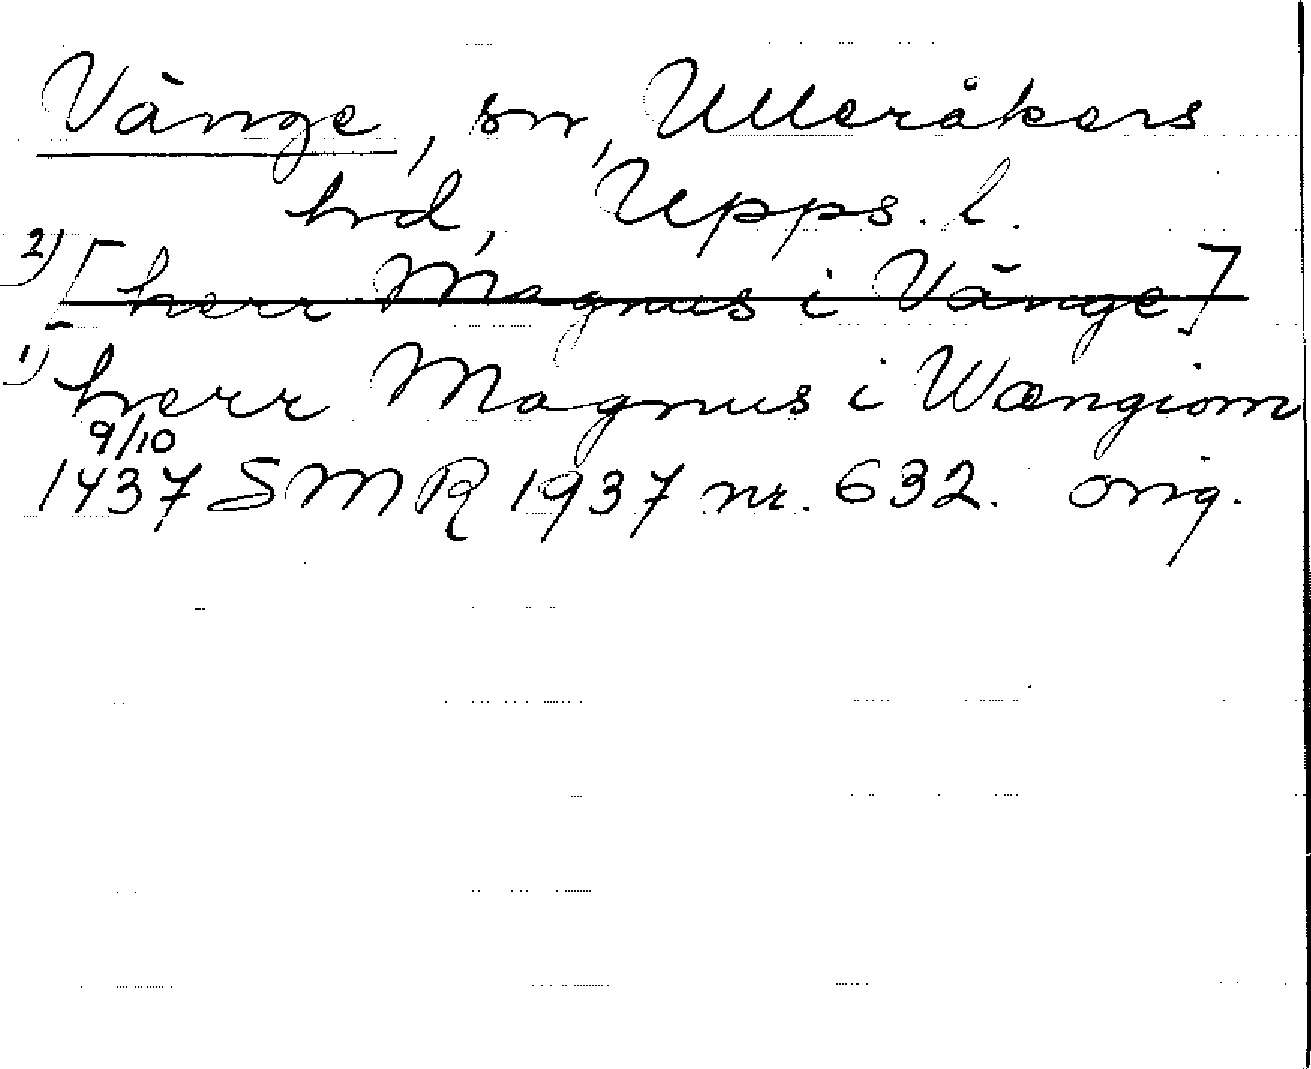 Vänge, sn, Ulleråkers
hrd, Upps. l.
2) [herr Magnus i Vänge]
1) herr Magnus i Wængiom
9/10
1437 SMR 1937 nr. 632. orig.